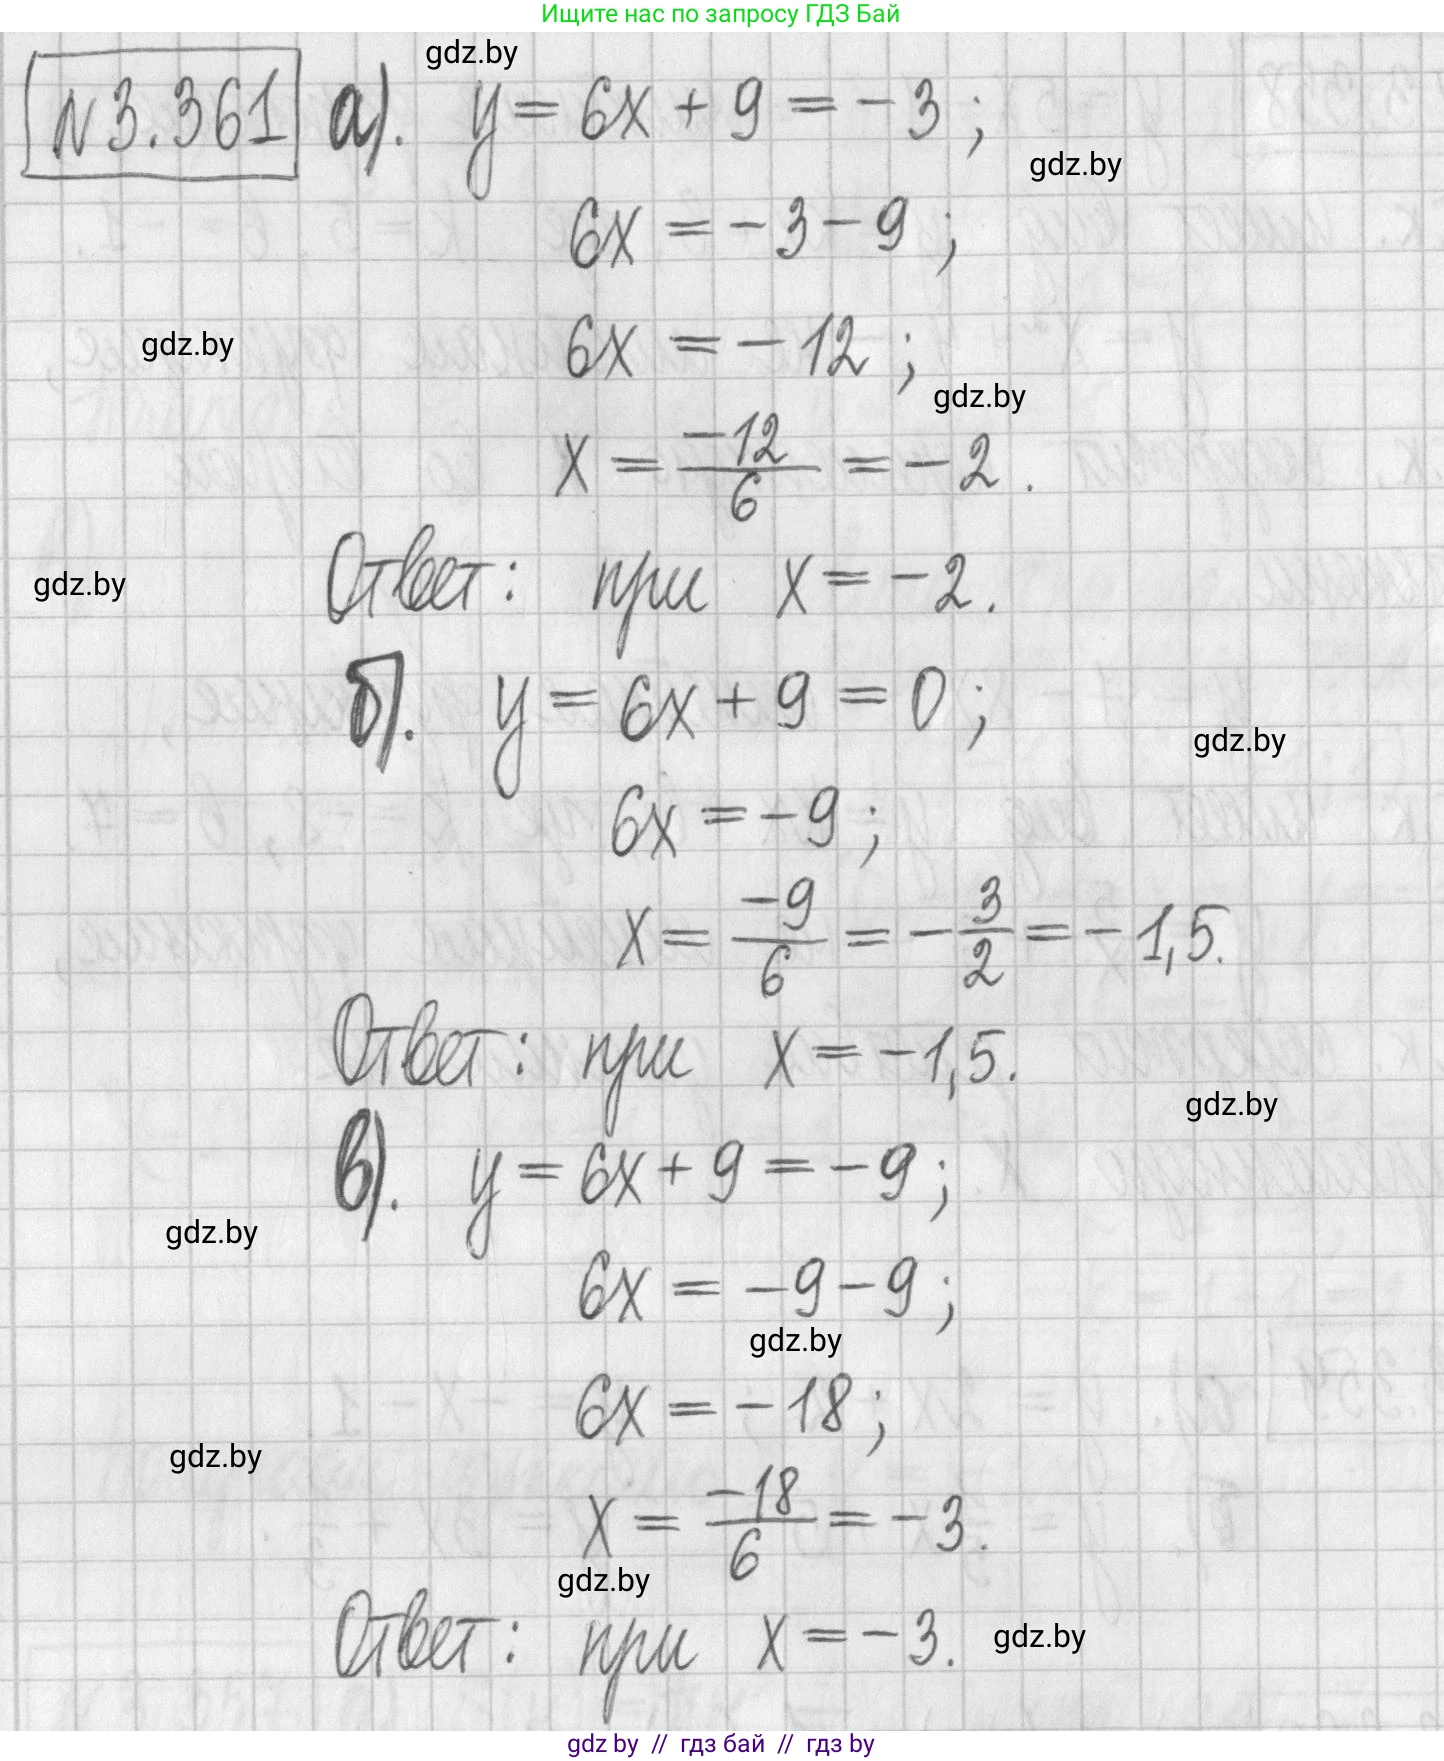 Ищите нас по запросу ГДЗ Бай
gdz.by
N3.361 а). y = 6x + 9 = -3 ;
gdz.by
6x = -3 - 9 ;
6x = -12 ;
gdz.by
gdz.by
x = -12/6 = -2 .
Ответ: при x = -2.
gdz.by
б). y = 6x + 9 = 0 ;
gdz.by
6x = -9 ;
x = -9/6 = -3/2 = -1,5.
Ответ: при x = -1,5.
gdz.by
в). y = 6x + 9 = -9 ;
gdz.by
6x = -9 - 9 ;
gdz.by
6x = -18 ;
gdz.by
x = -18/6 = -3.
gdz.by
Ответ: при x = -3.
gdz.by
gdz by // гдз бай // гдз by